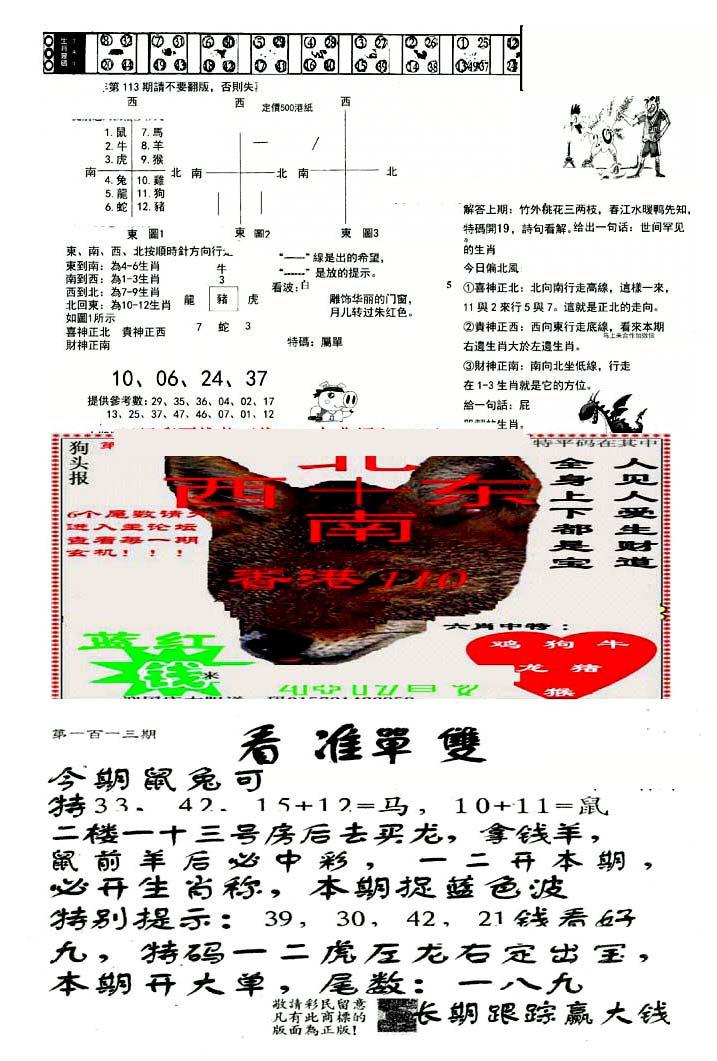 生肖靈碼
⑧ 32 ⑦ 31 ⑥ 30 ⑤ 29 ④ 28 ③ 27 ② 26 ① 25
20 44 19 43 18 42 17 41 16 40 15 14 38
第 113 期請不要翻版，否則失
西 西 定價500港紙 西
1. 鼠 7. 馬
2. 牛 8. 羊
3. 虎 9. 猴
南 北 南 北 南 北
4. 兔 10. 雞
5. 龍 11. 狗
6. 蛇 12. 豬
東 圖1 東 圖2 東 圖3
東、南、西、北按順時針方向行走
東到南：為4-6生肖
南到西：為1-3生肖
西到北：為7-9生肖
北回東：為10-12生肖
如圖1所示
喜神正北 貴神正西
財神正南
牛
3
龍 豬 虎
7 蛇 3
“——”線是出的希望，
“-----”是放的提示。
看波：白
5
雕饰华丽的门窗，
月儿转过朱红色。
特碼：屬單
10、06、24、37
提供參考數：29、35、36、04、02、17
13、25、37、47、46、07、01、12
解答上期：竹外桃花三两枝，春江水暖鸭先知，
特碼開19，詩句看解。给出一句话：世间罕见
的生肖
今日偏北風
①喜神正北：北向南行走高線，這樣一來，
11 與 2 來行 5 與 7。這就是正北的走向。
②貴神正西：西向東行走底線，看來本期
马上来合作加微信
右邊生肖大於左邊生肖。
③財神正南：南向北坐低線，行走
在 1-3 生肖就是它的方位。
給一句話：屁
的生肖。
狗头报
第
特平码在其中
北
西十东
南
香港110
6个尾数请
进入主论坛
查看每一期
玄机！！！
人见人爱生财道
全身上下都是宝
六肖中特：
鸡 狗 牛
龙 猪
猴
蓝 红
钱
米
第一百一三期
看准單雙
今期鼠兔可
特33，42，15+12=马，10+11=鼠
二楼一十三号房后去买龙，拿钱羊，
鼠前羊后必中彩，一二开本期，
必开生肖称，本期捉蓝色波
特别提示：39，30，42，21钱看好
九，特码一二虎左龙右定出宝，
本期开大单，尾数：一八九
敬請彩民留意
凡有此商標的
版面為正版！
长期跟踪赢大钱